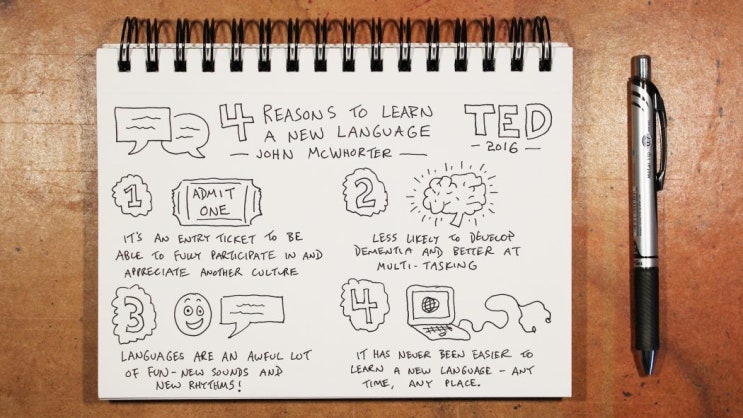 4 REASONS TO LEARN
A NEW LANGUAGE
— JOHN MCWHORTER —
TED
- 2016 -
1
ADMIT
ONE
IT'S AN ENTRY TICKET TO BE
ABLE TO FULLY PARTICIPATE IN AND
APPRECIATE ANOTHER CULTURE
2
LESS LIKELY TO DEVELOP
DEMENTIA AND BETTER AT
MULTI-TASKING
3
LANGUAGES ARE AN AWFUL LOT
OF FUN - NEW SOUNDS AND
NEW RHYTHMS!
4
IT HAS NEVER BEEN EASIER TO
LEARN A NEW LANGUAGE - ANY
TIME, ANY PLACE.